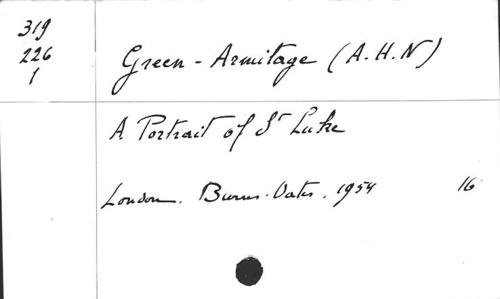 319
226
1
Green-Armitage (A.H.N)
A Portrait of St Luke
London. Burns-Oates. 1954 16